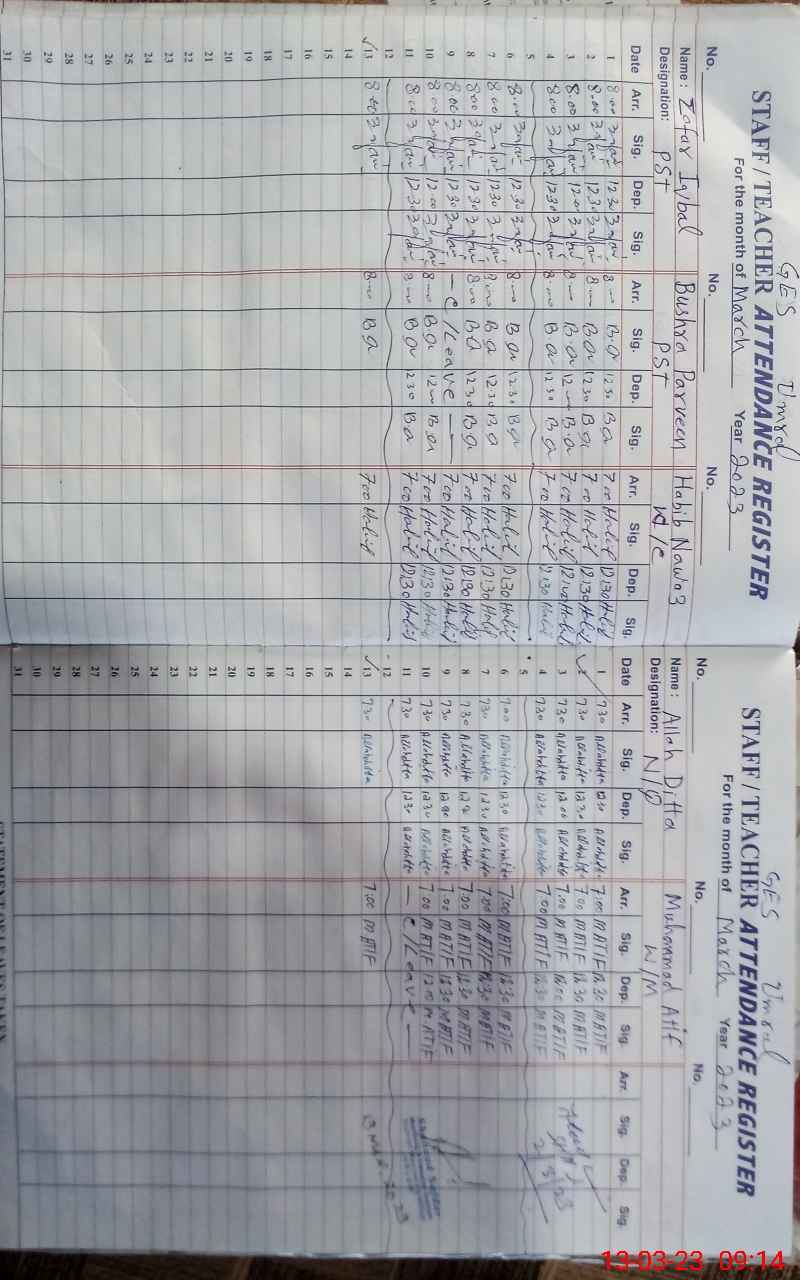 GES Umral
STAFF / TEACHER ATTENDANCE REGISTER
For the month of March Year 2023
No. No. No.
Name: Zafar Iqbal Bushra Parveen Habib Nawaz
Designation: PST PST
Date Arr. Sig. Dep. Sig. Arr. Sig. Dep. Sig. Arr. Sig. Dep. Sig.
1 8.00 12 30 8 00 B.a 12 30 B a 7 00 Habib 12.30 Habib
2 8.00 12 30 8 00 B a 12 30 B a 7 00 Habib 12.30 Habib
3 8.00 12 00 8 00 B.a 12 00 B.a 7 00 Habib 12.00 Habib
4 8 00 12 30 8 00 B a 12 30 B a 7 00 Habib 12.30 Habib
5
6 8.00 12 30 8 00 B a 12 30 B a 7 00 Habib 12.30 Habib
7 8 00 12 30 8 00 B a 12 30 B a 7 00 Habib 12.30 Habib
8 8 00 12 30 8 00 B a 12 30 B a 7 00 Habib 12.30 Habib
9 8 00 12 30 — C/Leave — 7 00 Habib 12.30 Habib
10 8 00 12 00 8 00 B a 12 00 B a 7 00 Habib 12 30 Habib
11 8.00 12 30 8 00 B a 12 30 B a 7 00 Habib 12.30 Habib
12
13 8 00 8 00 B a 7 00 Habib
14
15
16
17
18
19
20
21
22
23
24
25
26
27
28
29
30
31
GES Umral
STAFF / TEACHER ATTENDANCE REGISTER
For the month of March Year 2023
No. No. No.
Name: Allah Ditta Muhammad Atif
Designation: N/Q W/M
Date Arr. Sig. Dep. Sig. Arr. Sig. Dep. Sig. Arr. Sig. Dep. Sig.
1 7 30 Allahditta 12 30 Allahditta 7.00 M ATIF 12.30 M ATIF
2 7 30 Allahditta 12 30 Allahditta 7.00 M ATIF 12.30 M ATIF
3 7 30 Allahditta 12 00 Allahditta 7.00 M ATIF 12.00 M ATIF
4 7 30 Allahditta 12 30 Allahditta 7.00 M ATIF 12.30 M ATIF
5
6 7 00 Allahditta 12 30 Allahditta 7.00 M ATIF 12.30 M ATIF
7 7 30 Allahditta 12 30 Allahditta 7.00 M ATIF 12.30 M ATIF
8 7 30 Allahditta 12 30 Allahditta 7.00 M ATIF 12.30 M ATIF
9 7 30 Allahditta 12 30 Allahditta 7.00 M ATIF 12.30 M ATIF
10 7 30 Allahditta 12 30 Allahditta 7.00 M ATIF 12.00 M ATIF
11 7 30 Allahditta 12 30 Allahditta — C/Leave —
12
13 7 30 Allahditta 7.00 M ATIF
14
15
16
17
18
19
20
21
22
23
24
25
26
27
28
29
30
31
2/3/23
13 MAR 2023
STATEMENT OF LEAVES TAKEN
13-03-23 09:14